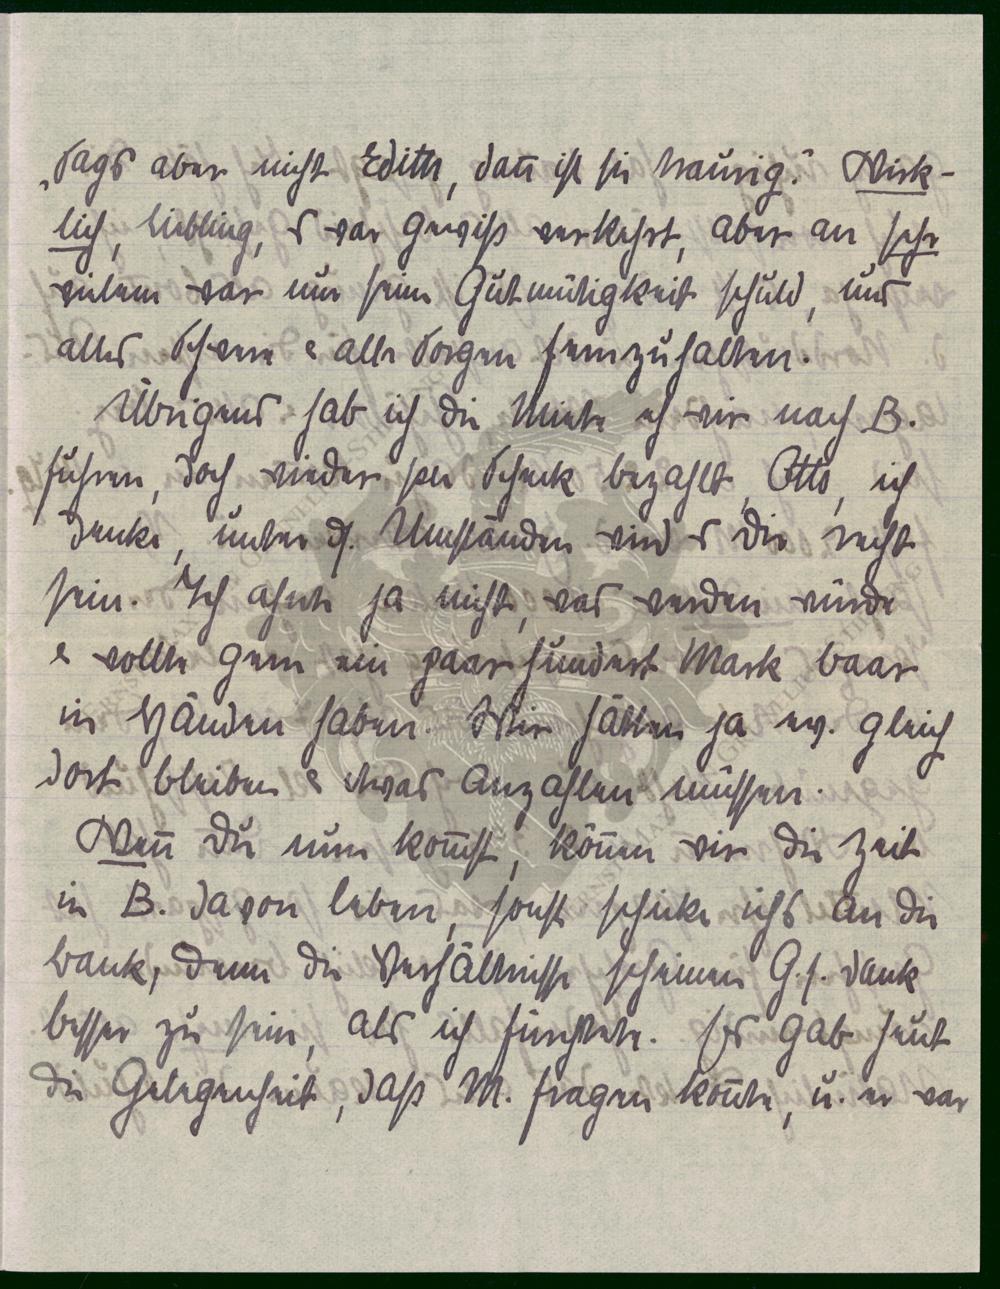 „Sags aber nicht Edith, dañ ist sie traurig." Wirk-
lich, Liebling, es war gewiß verkehrt, aber an sehr
vielem war nur seine Gutmütigkeit schuld, uns
alles Schwere & alle Sorgen fernzuhalten.
Übrigens hab ich die Miete eh wir nach B.
fuhren, doch wieder per Scheck bezahlt, Otto, ich
denke, unter d. Umständen wird es Dir recht
sein. Ich ahnte ja nicht, was werden würde
& wollte gern ein paar hundert Mark baar
in Händen haben. Wir hätten ja ev. gleich
dort bleiben & etwas Anzahlen müssen.
Weñ Du nun kom̅st, köñen wir die Zeit
in B. davon leben, sonst schicke ichs an die
bank, denn die Verhältnisse scheinen G. s. dank
besser zu sein, als ich fürchtete. Es gab heut
die Gelegenheit, daß M. fragen koñte, u. er war